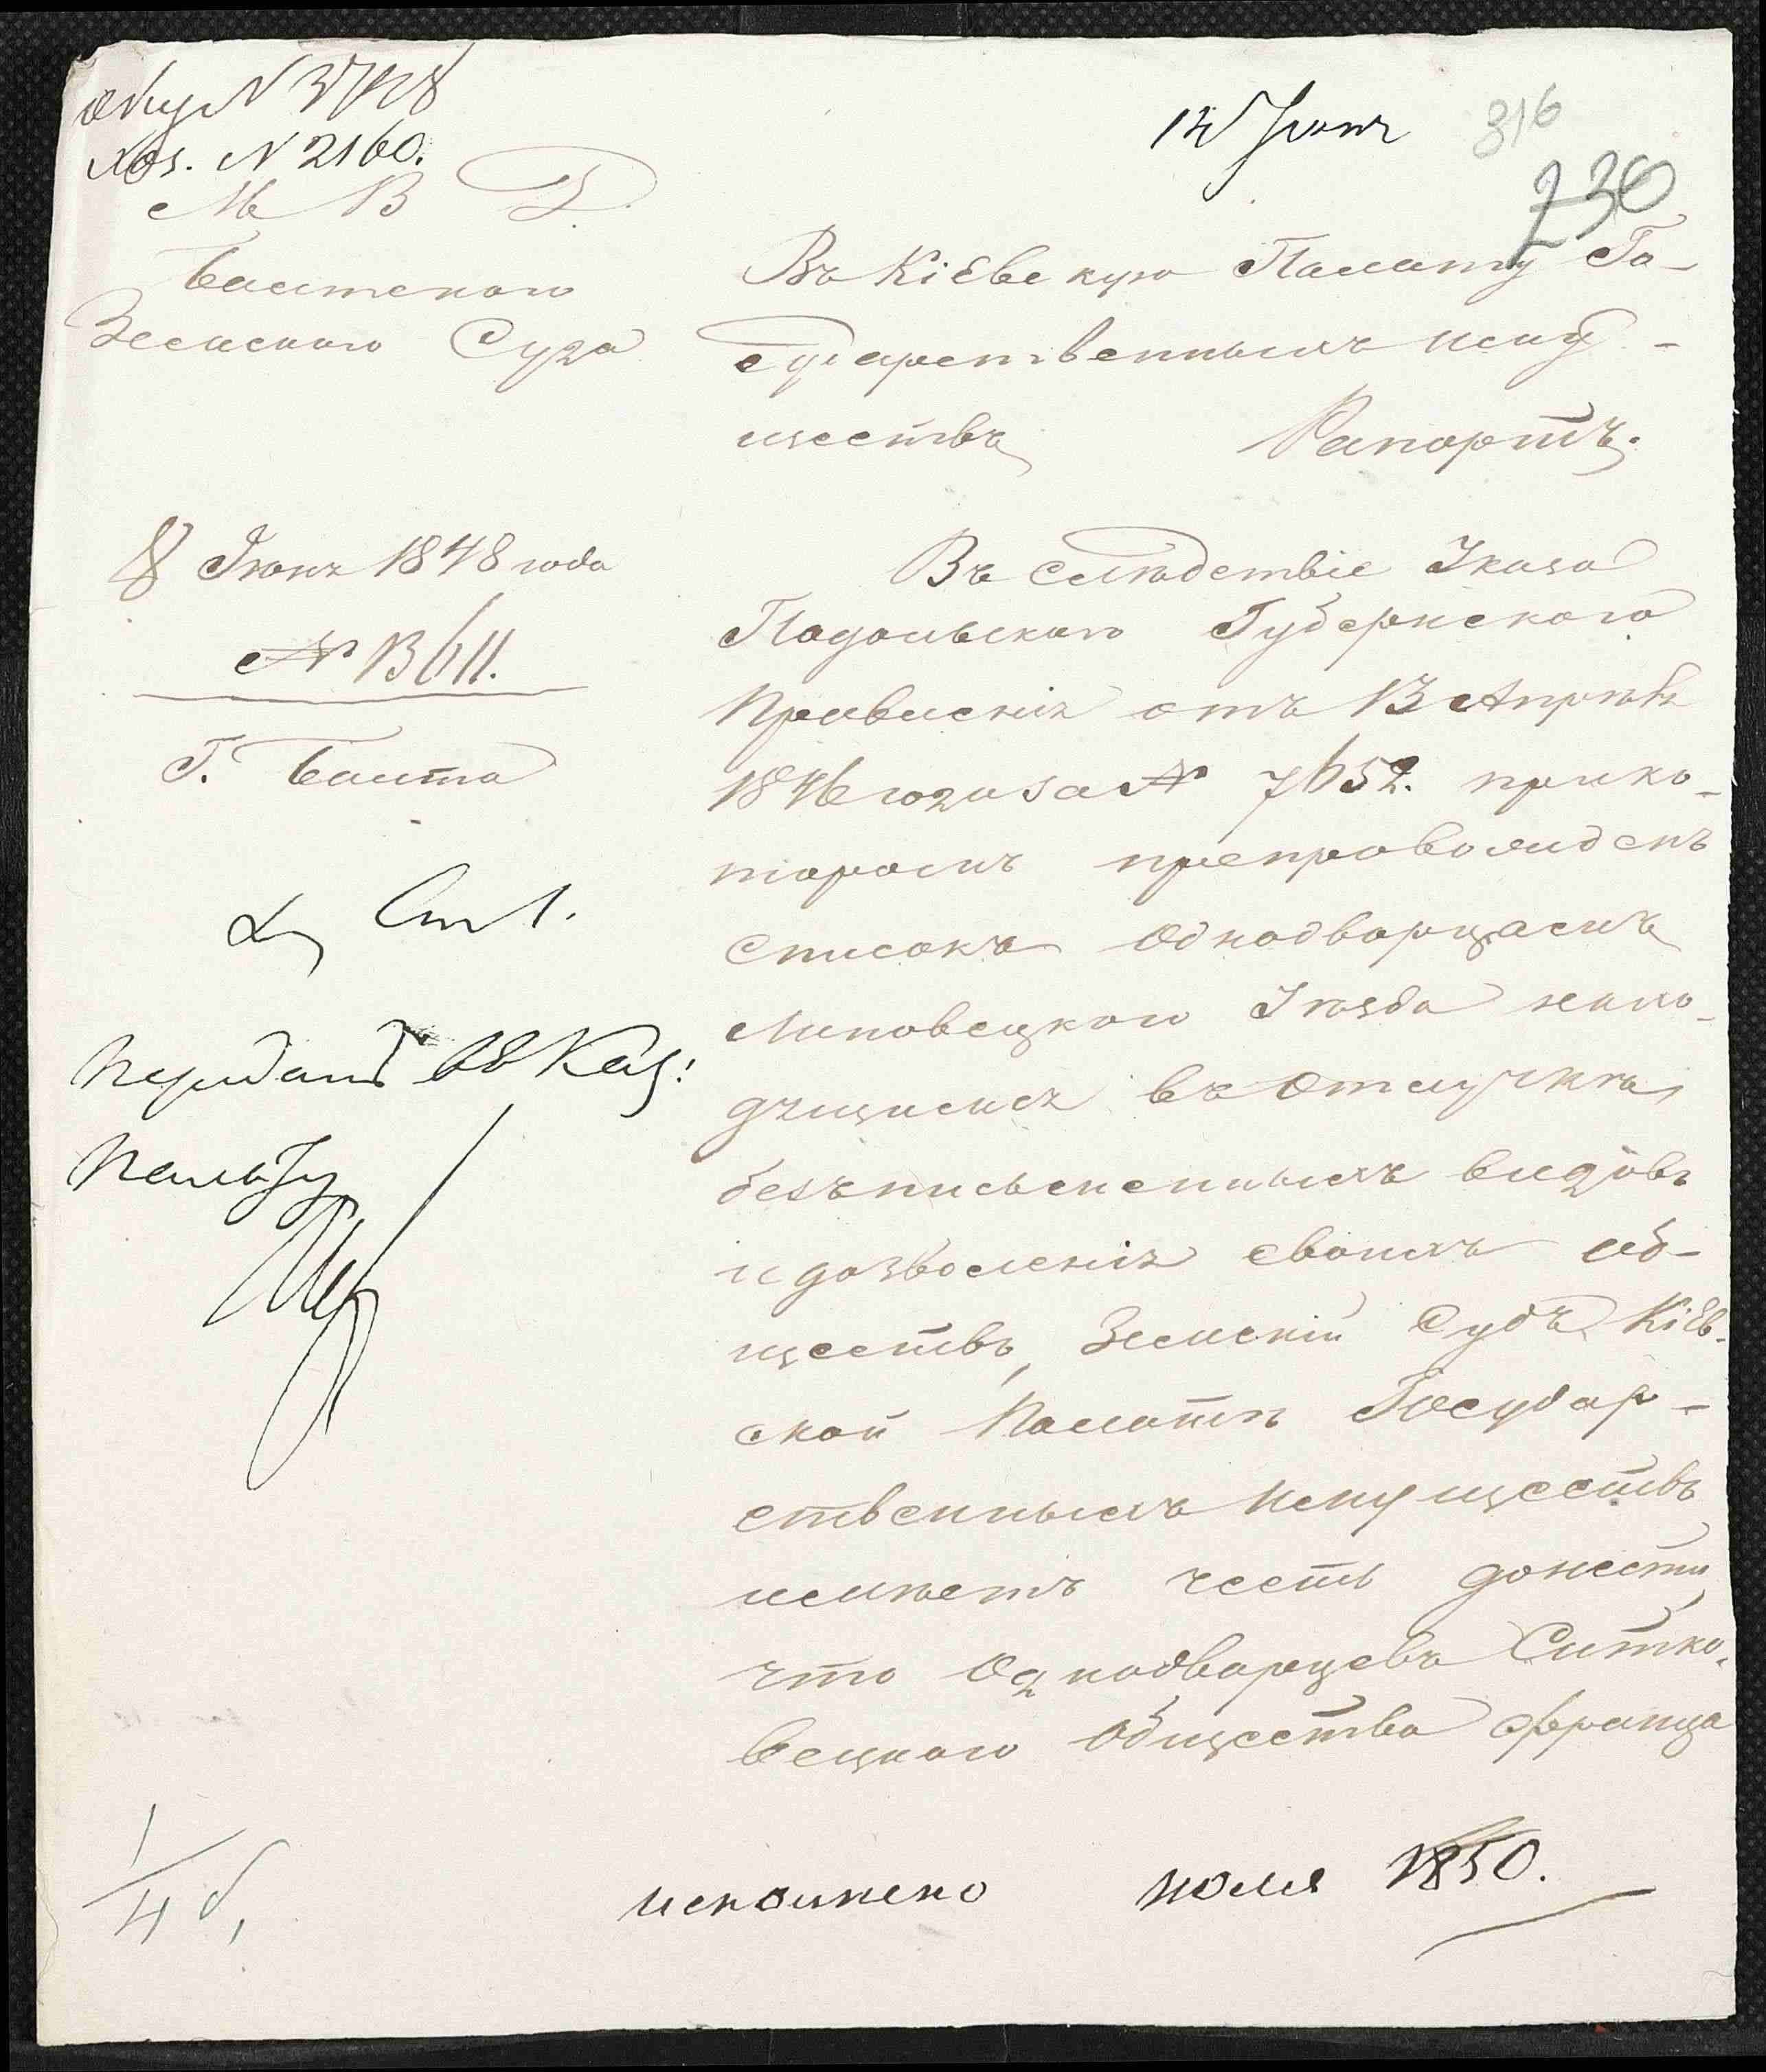 N 3728
Хоз. N 2160.
12 Іюня
316
230
М В Д.
Балтского
Земского Суда
Въ Кіевскую Палату Го-
сударственныхъ Иму-
ществъ
Рапортъ.
8 Іюня 1848 года
№ 13611.
Г. Балта
Въ слѣдствіе Указа
Подольскаго Губернскаго
Правленія отъ 13 Апрѣля
1846 года за № 7652. при ко-
торомъ препровожденъ
списокъ Однодворцамъ
Липовецкаго Уѣзда нахо-
дящимся въ отлучкѣ
безъ письменныхъ видовъ
и дозволенія своихъ об-
ществъ, Земскій Судъ Кіев-
ской Палатѣ Государ-
ственныхъ Имуществъ
имѣетъ честь донести
что Однодворцевъ Ситко-
вецкаго Общества Франца
Передать въ Каз:
Палату
1/4 б,
исполнено іюля 1850.